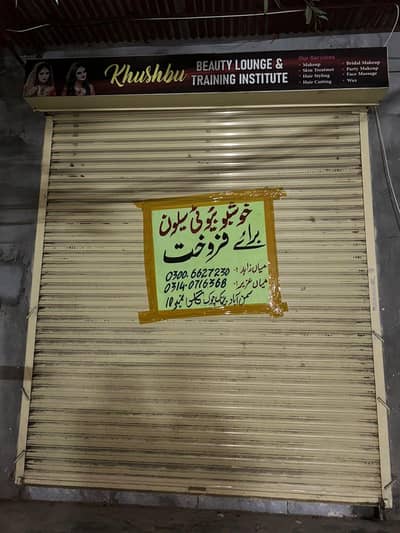 Khushbu BEAUTY LOUNGE &
TRAINING INSTITUTE
Our Services
• Makeup
• Skin Treatment
• Hair Styling
• Hair Cutting
• Bridal Makeup
• Party Makeup
• Face Massage
• Wax
خوشبو بیوٹی سیلون
برائے فروخت
میاں زاہد: 0300.6627230
میاں عزیر: 0314.0716368
سمن آباد چوک گلی نمبر 10